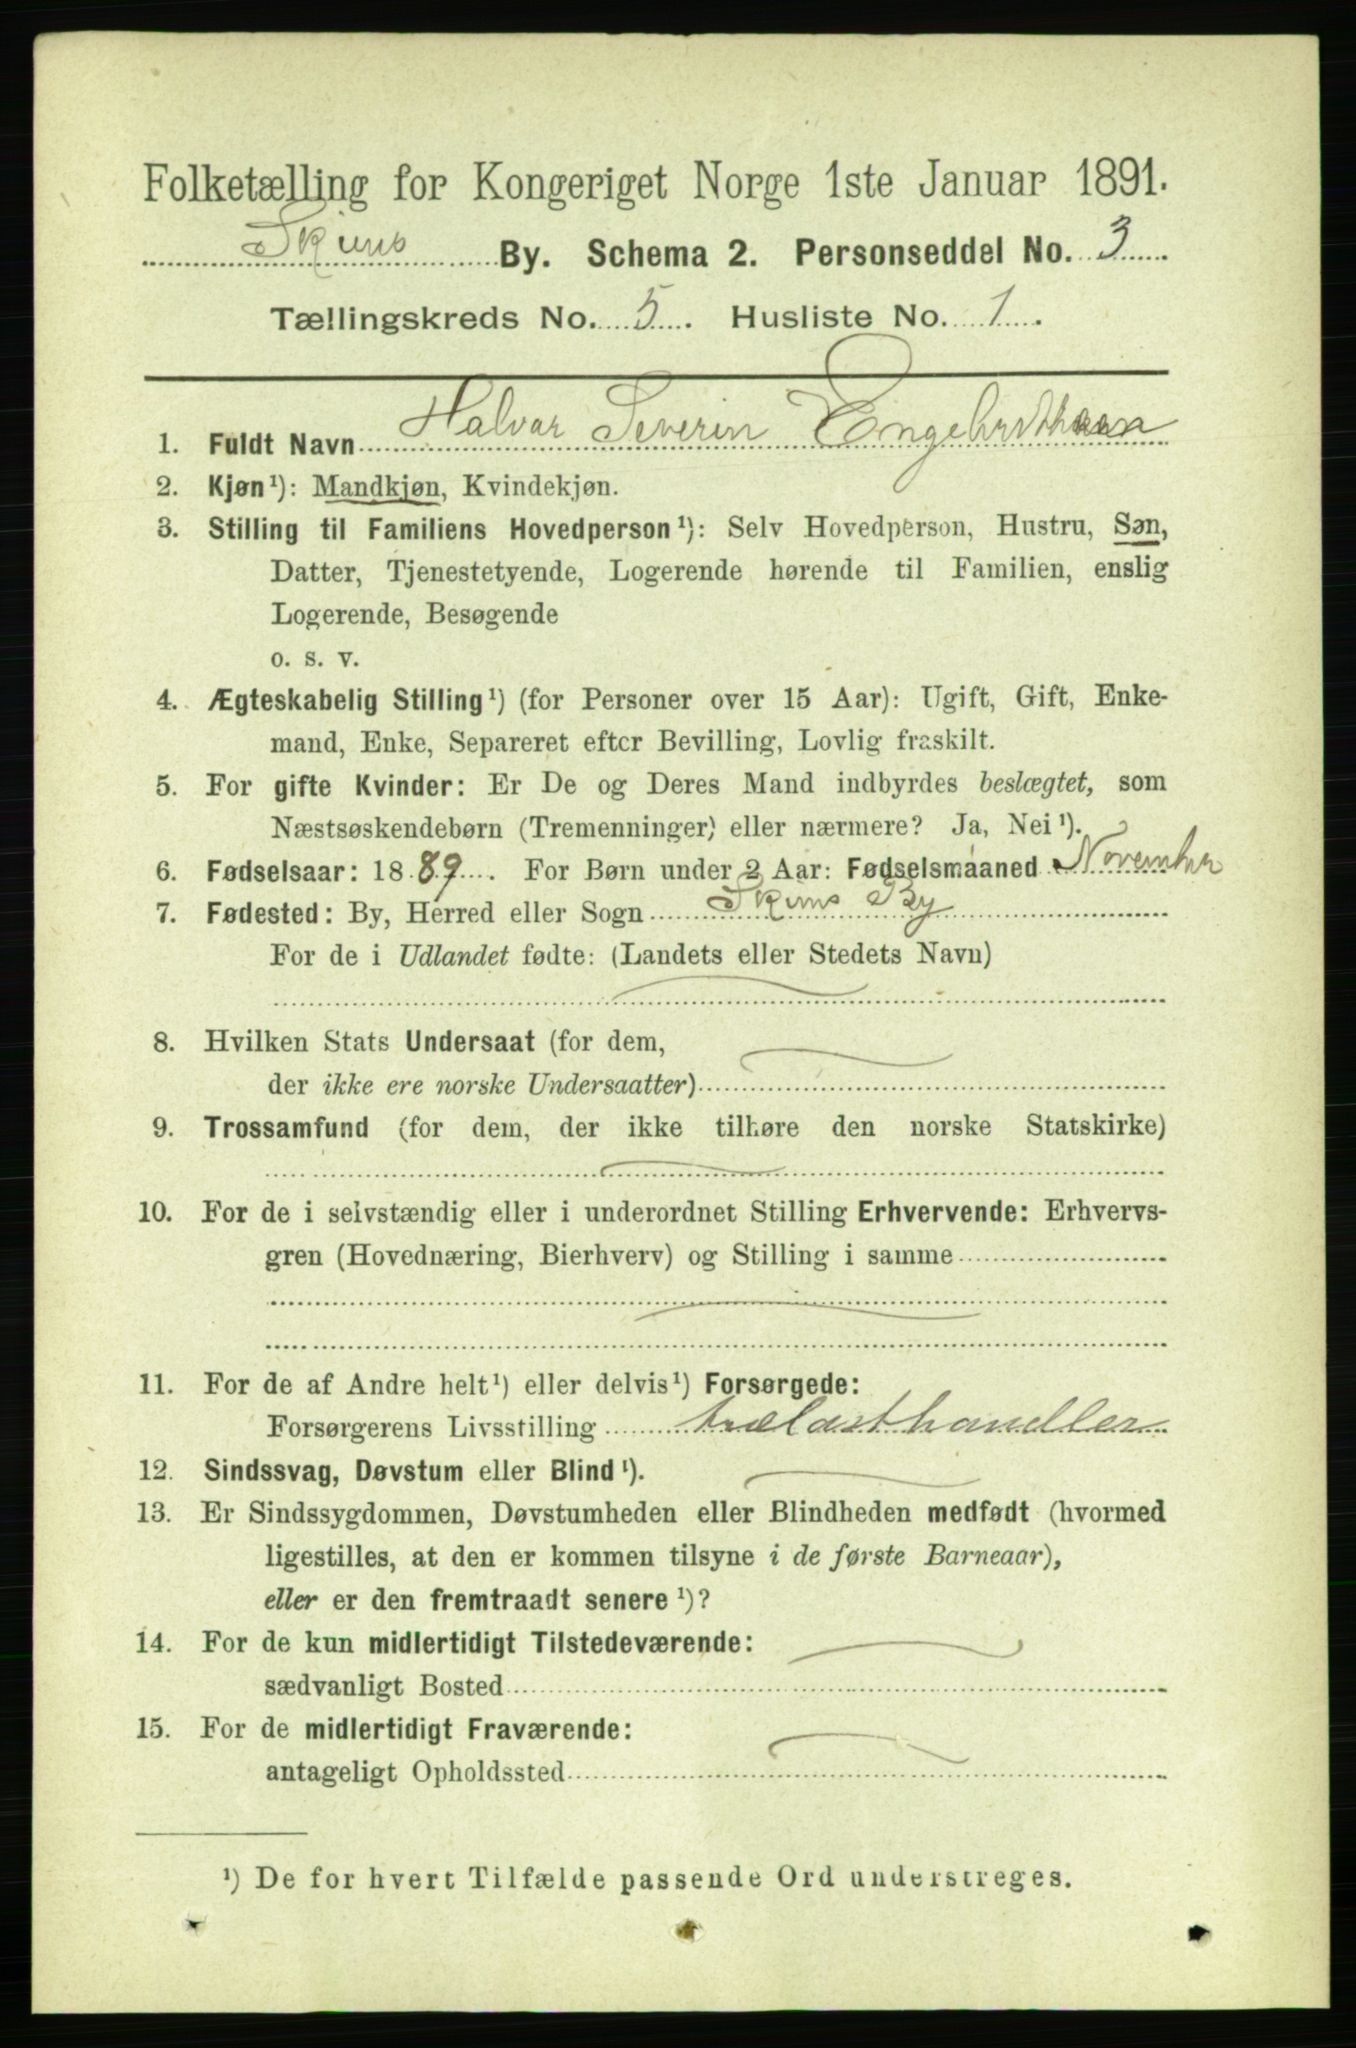 Folketælling for Kongeriget Norge 1ste Januar 1891.
Skiens By. Schema 2. Personseddel No. 3
Tællingskreds No. 5. Husliste No. 1.
1. Fuldt Navn Halvar Severin
2. Kjøn¹): Mandkjøn, Kvindekjøn.
3. Stilling til Familiens Hovedperson¹): Selv Hovedperson, Hustru, Søn,
Datter, Tjenestetyende, Logerende hørende til Familien, enslig
Logerende, Besøgende
o. s. v.
4. Ægteskabelig Stilling¹) (for Personer over 15 Aar): Ugift, Gift, Enke-
mand, Enke, Separeret efter Bevilling, Lovlig fraskilt.
5. For gifte Kvinder: Er De og Deres Mand indbyrdes beslægtet, som
Næstsøskendebørn (Tremenninger) eller nærmere? Ja, Nei¹).
6. Fødselsaar: 1889. For Børn under 2 Aar: Fødselsmaaned November
7. Fødested: By, Herred eller Sogn Skiens By
For de i Udlandet fødte: (Landets eller Stedets Navn)
8. Hvilken Stats Undersaat (for dem,
der ikke ere norske Undersaatter)
9. Trossamfund (for dem, der ikke tilhøre den norske Statskirke)
10. For de i selvstændig eller i underordnet Stilling Erhvervende: Erhvervs-
gren (Hovednæring, Bierhverv) og Stilling i samme
11. For de af Andre helt¹) eller delvis¹) Forsørgede:
Forsørgerens Livsstilling trælasthandler
12. Sindssvag, Døvstum eller Blind¹).
13. Er Sindssygdommen, Døvstumheden eller Blindheden medfødt (hvormed
ligestilles, at den er kommen tilsyne i de første Barneaar),
eller er den fremtraadt senere¹)?
14. For de kun midlertidigt Tilstedeværende:
sædvanligt Bosted
15. For de midlertidigt Fraværende:
antageligt Opholdssted
¹) De for hvert Tilfælde passende Ord understreges.